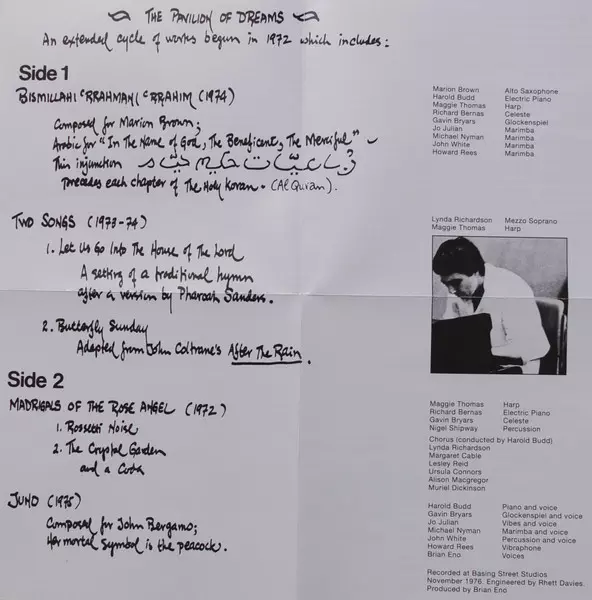 THE PAVILION OF DREAMS
An extended cycle of works begun in 1972 which includes:
Side 1
BISMILLAHI 'RRAHMANI 'RRAHIM (1974)
Composed for Marion Brown;
Arabic for "In The Name of God, The Beneficent, The Merciful" -
This injunction رباعیّات حکیم خیّام
precedes each chapter of The Holy Koran. (Al Qur'an).
Marion Brown Alto Saxophone
Harold Budd Electric Piano
Maggie Thomas Harp
Richard Bernas Celeste
Gavin Bryars Glockenspiel
Jo Julian Marimba
Michael Nyman Marimba
John White Marimba
Howard Rees Marimba
TWO SONGS (1973-74)
1. Let Us Go Into The House of The Lord
A setting of a traditional hymn
after a version by Pharoah Sanders.
2. Butterfly Sunday
Adapted from John Coltrane's After The Rain.
Lynda Richardson Mezzo Soprano
Maggie Thomas Harp
Side 2
MADRIGALS OF THE ROSE ANGEL (1972)
1. Rossetti Noise
2. The Crystal Garden
and a Coda
Maggie Thomas Harp
Richard Bernas Electric Piano
Gavin Bryars Celeste
Nigel Shipway Percussion
Chorus (conducted by Harold Budd)
Lynda Richardson
Margaret Cable
Lesley Reid
Ursula Connors
Alison Macgregor
Muriel Dickinson
JUNO (1975)
Composed for John Bergamo;
Her mortal symbol is the peacock.
Harold Budd Piano and voice
Gavin Bryars Glockenspiel and voice
Jo Julian Vibes and voice
Michael Nyman Marimba and voice
John White Percussion and voice
Howard Rees Vibraphone
Brian Eno Voices
Recorded at Basing Street Studios
November 1976. Engineered by Rhett Davies
Produced by Brian Eno